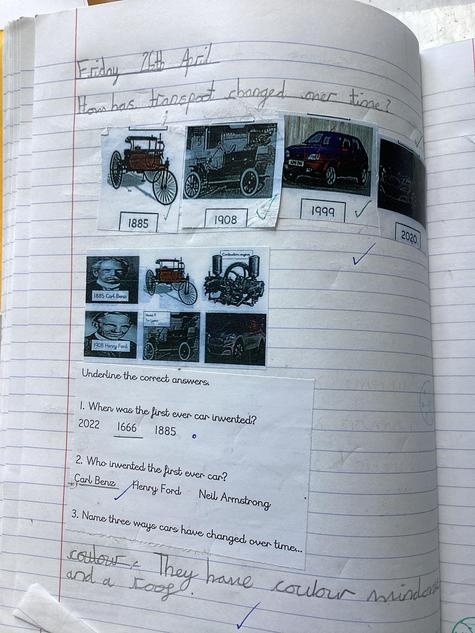 Friday 26th April
How has transport changed over time?
1885
1908
1999
2020
Combustion engine
1885 Carl Benz
1908 Henry Ford
Model T
Underline the correct answers.
1. When was the first ever car invented?
2022 1666 1885
2. Who invented the first ever car?
Carl Benz Henry Ford Neil Armstrong
3. Name three ways cars have changed over time...
coulour. They have coulour windows
and a roof.